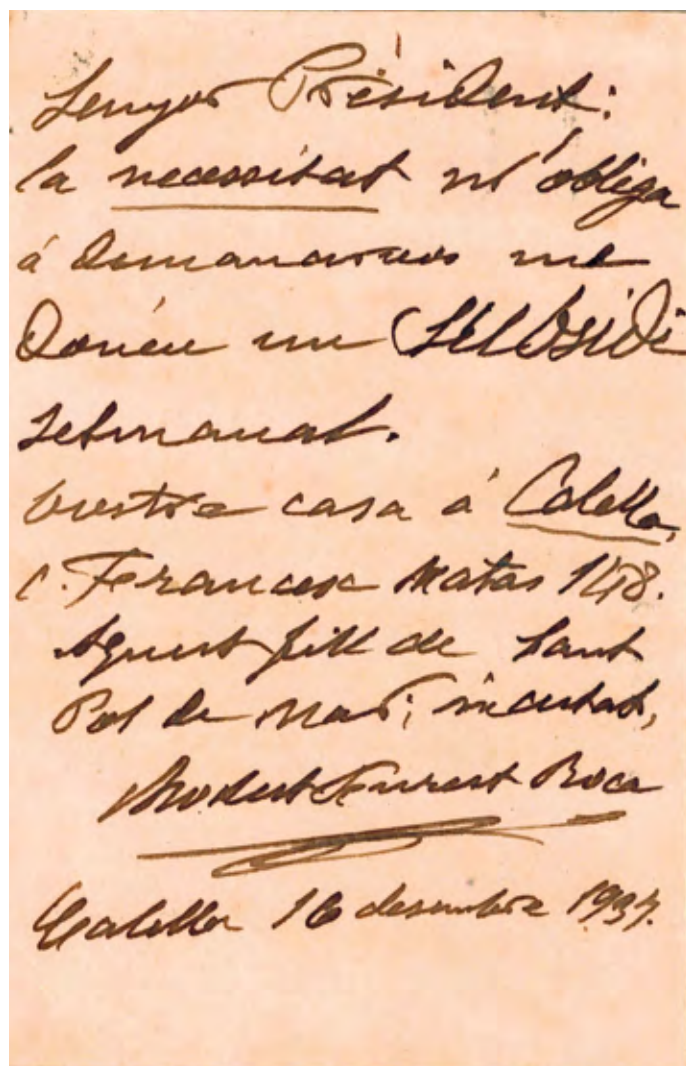 Senyor President:
la necessitat m'obliga
á demanarvos me
donéu un subsidi
setmanal.
vostra casa á Calella,
c. Francesc Matas 148.
Aquest fill de Sant
Pol de Mar; incautat,
Modest Furest Roca
Calella 16 desembre 1937.